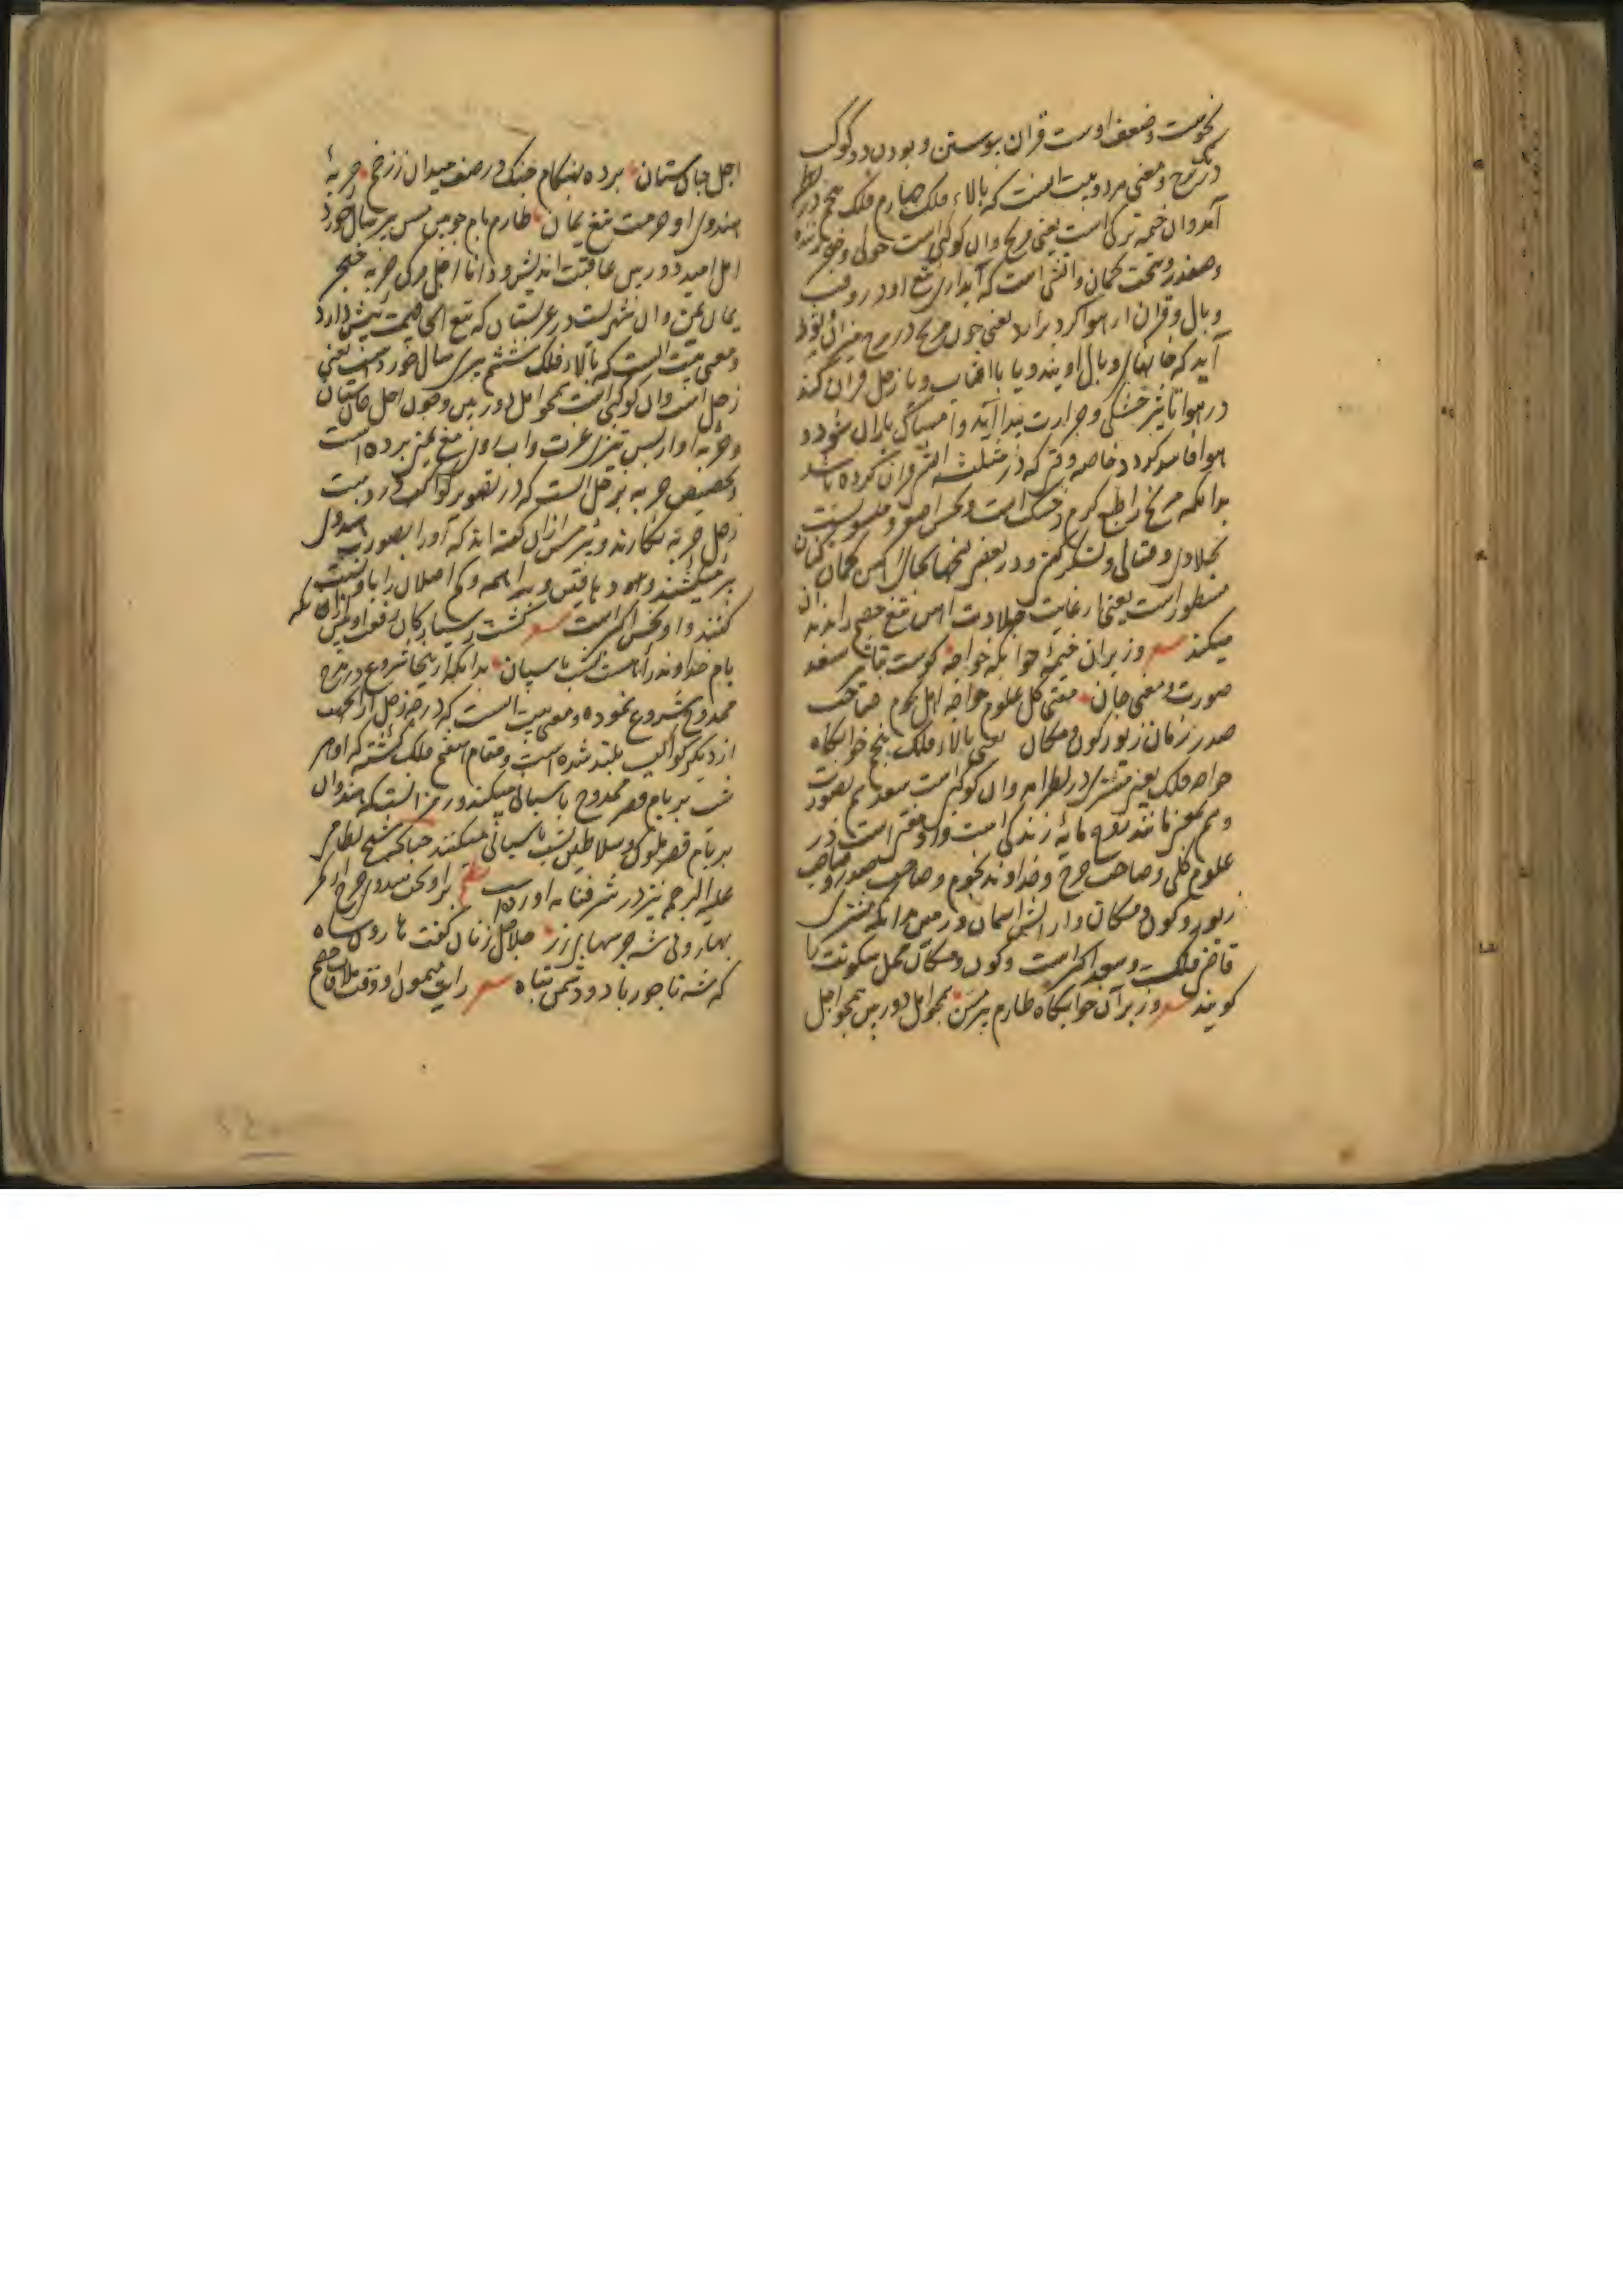 نحوست و ضعف اوست قران پیوستن و بودن دو کوکب
در یک برج و معنی هر دو بیت اینست که بالاء فلک چهارم فلک پنجم در نظر
آمد و آن خیمه ترکی است یعنی مریخ و آن کوکبی است خونی و خونریزنده
و صفدر و سخت کمان و آتشی است که آبداری تیغ او در وقت
وبال و قران از هوا گرد برآرد یعنی چون مریخ در برج میزان و ثور
آید که خانهای وبال اویند و یا با آفتاب و یا زحل قران کند
در هوا تاثیر خشکی و حرارت پیدا آید و امساک باران شود و
هوا فاسد گردد خاصه وقتی که در مثلثه آتشی قران کرده باشد
بدانکه مریخ را طبع گرم و خشک است و نحس اصغر و منسوبست
بجلادی و قتالی و لشکرکشی و در بعضی نسخها بجای آهن کمان کنان
مسطور است یعنی از غایت جلادت آهن تیغ خصم را
میکند وز بر آن خیمه خوابگه خواجه کوست بتاثیر سعد
صورت و معنی جان مفتی کل علوم خواجه اهل نجوم صاحب
صدر زمان زیور کون و مکان یعنی بالاء فلک پنجم خوابگاه
خواجه فلک یعنی مشتری در نظرم و آن کوکبی است سعد هم بصورت
و هم بمعنی مانند روح مایه زندگی است و او مفتی است در
علوم کلی و صاحب چرخ و خداوند نجوم و صاحب صدور و صاحب
زیور و کون و مکان و آرایش آسمان و زمین بدانکه مشتری
قاضی فلک و سعد اکبر است و کون و مکان محل سکونت را
گویند وز بر آن خوابگاه طارم پیر مسن همچو امل دوربین همچو اجل
اجل جان ستان برده بهنگام جنگ در صف میدان ز زخم حربه
هندوی او حرمت تیغ یمان طارم بام چوبین مسن پیر سال خورد
امل امید دوربین عاقبت اندیش و دانا اجل مرگ حربه خنجر
یمان یمن و آن شهریست در عربستان که تیغ آنجا قیمت بیش دارد
و معنی بیت اینست که بالاء فلک ششم پیری سال خورد است یعنی
زحل است و آن کوکبی است همچو امل دوربین و چون اجل جان ستان
و حربه او از بس تیزی عزت و آب روی تیغ یمن برده است
و تخصیص حربه بزحل اینست که در تصویر کواکب در دست
زحل حربه نگارند و پیر مسن ازان گفته اند که او را بصورت هندوی
پیر میکشند و هنود باقین و براهمه و کم اصلان را باو نسبت
کنند و او نحس اکبر است گشت ز سیارگان رفعت او بیش ازان که
بام خداوند را هست بشب پاسبان بدانکه از اینجا شروع در مدح
ممدوح شروع نموده و معنی بیت اینست که درجه زحل ازانجهت
از دیگر کواکب بلند شده است و مقام اسقف فلک گشته که او هر
شب بر بام قصر ممدوح پاسبانی میکند و رمز اینست که هندوان
بر بام قصر ملوک و سلاطین بشب پاسبانی میکنند چنانکه شیخ نظامی
علیه الرحمه نیز در شرفنامه آورده است
بهارونی شه جرسهای زر جلاجل زنان گفت هارون شاه
که شه تاجور باد و دشمن تباه رایت میمون او وقت ملاقات خصم